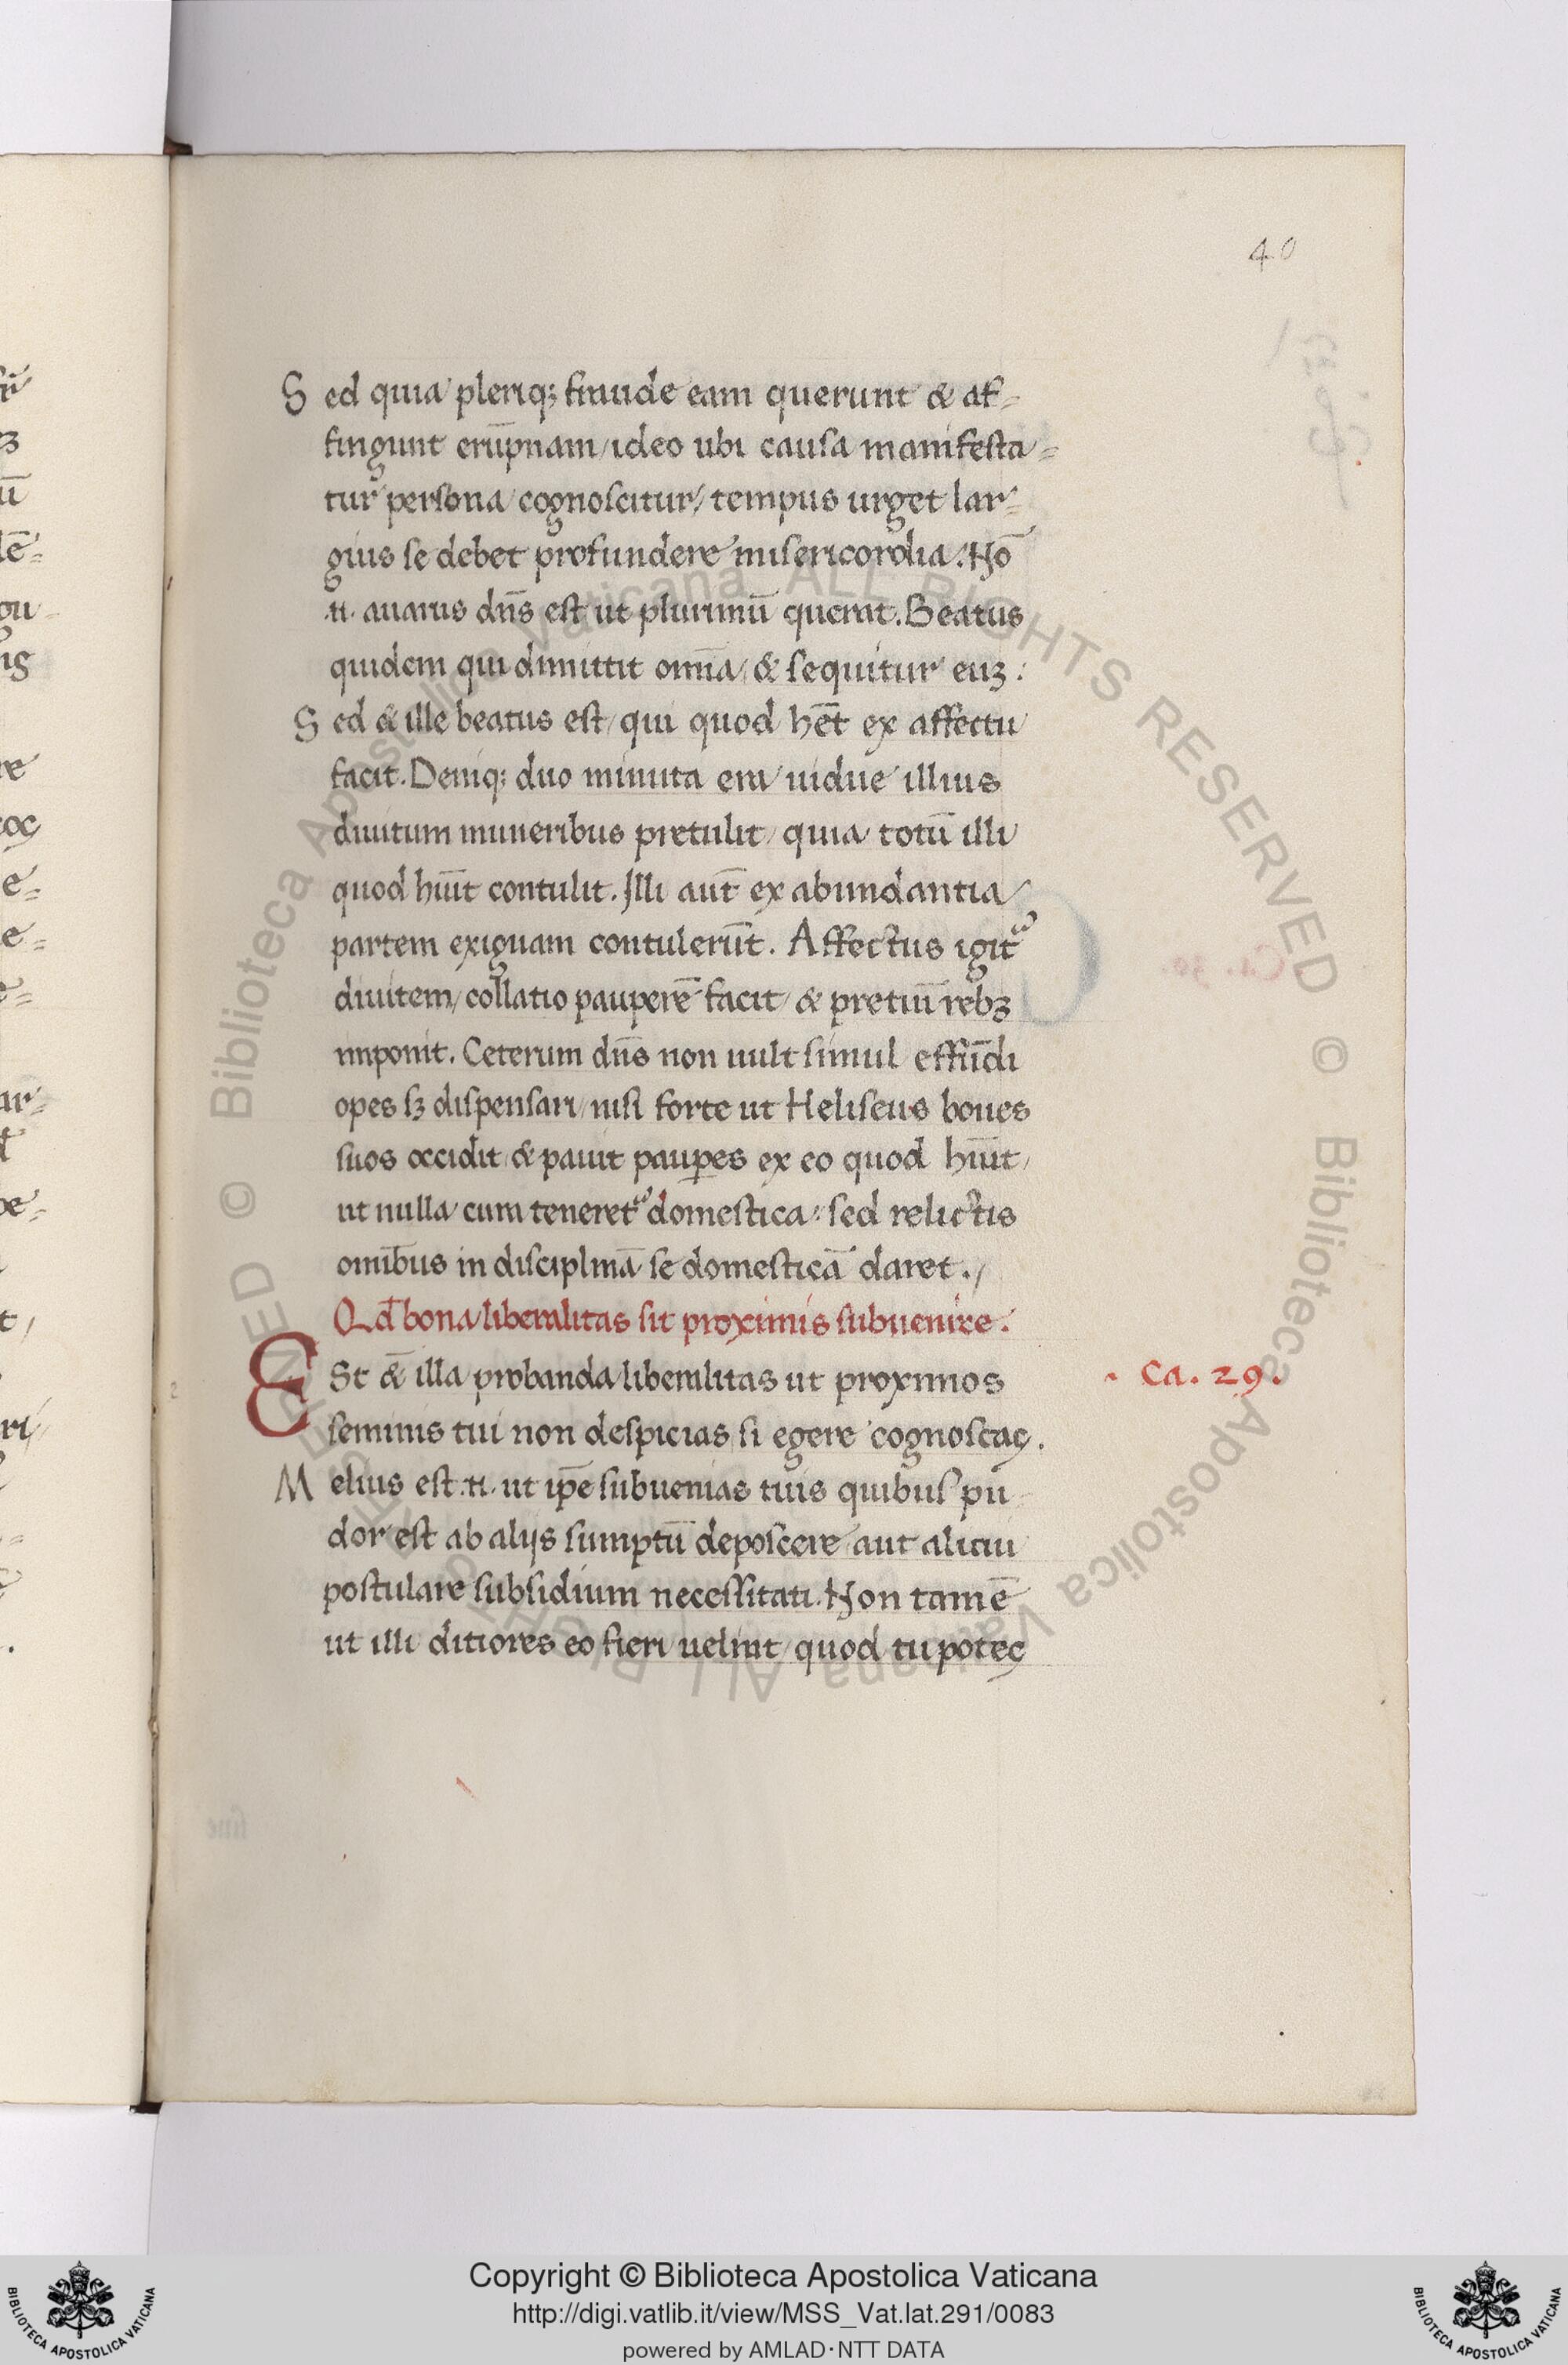 40
Sed quia pleriq; fraude eam querunt & af-
fingunt erūpnam / ideo ubi causa manifesta-
tur persona cognoscitur / tempus urget lar-
gius se debet profundere misericordia. Nō
.n. auarus dn̄s est ut plurimū querat. Beatus
quidem qui dimittit om̄ia / & sequitur euʒ:
Sed & ille beatus est / qui quod hēt ex affectu
facit. Deniq; duo minuta era uidue illius
diuitum muneribus pretulit / quia totū illi
quod hūit contulit. Illi aut̄ ex abundantia
partem exiguam contulerūt. Affectus igit᷑
diuitem / collatio pauperē facit / & pretiū rebʒ
imponit. Ceterum dn̄s non uult simul effūdi
opes sʒ dispensari / nisi forte ut Heliseus boues
suos occidit / & pauit paup̲es ex eo quod hūit /
ut nulla cura teneret᷑ domestica: sed relictis
omīb̄us in disciplinā se domesticā daret. /
Qd̄ bona liberalitas sit proximis subuenire.
ESt &̄ illa probanda liberalitas ut proximos
Ca. 29.
seminis tui non despicias si egere cognoscaꝯ.
Melius est .n. ut ip̄e subuenias tuis quibus pu
dor est ab alijs sumptū deposcere aut alicui
postulare subsidium necessitati. Non tamē
ut illi ditiores eo fieri uelint / quod tu poteꝯ
Copyright © Biblioteca Apostolica Vaticana
http://digi.vatlib.it/view/MSS_Vat.lat.291/0083
powered by AMLAD·NTT DATA